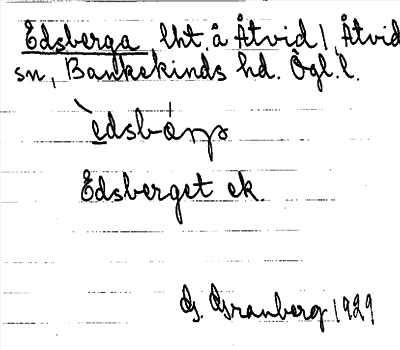 Edsberga, lht. å Åtvid 1, Åtvid
sn, Bankekinds hd. Ögl. l.
Edsberget ek.
G. Granberg 1929